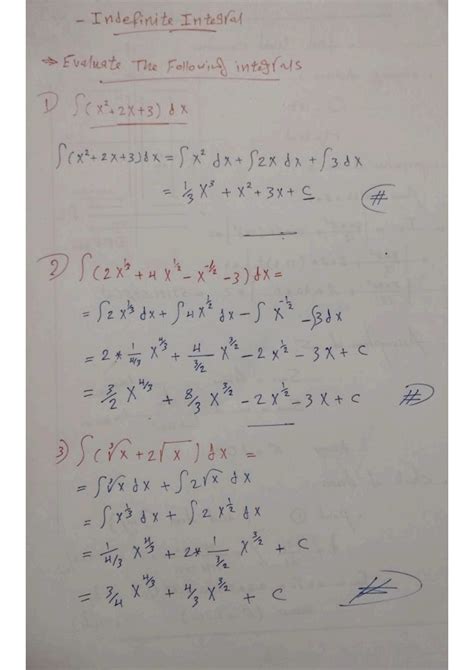 - Indefinite Integral
→ Evaluate The Following integrals
1) ∫(x²+2x+3) dx
∫(x²+2x+3)dx = ∫x² dx + ∫2x dx + ∫3 dx
= 1/3 x³ + x² + 3x + C #
2) ∫(2x^1/3 + 4x^1/2 - x^-1/2 - 3) dx =
= ∫2x^1/3 dx + ∫4x^1/2 dx - ∫x^-1/2 - ∫3dx
= 2* 1/4/3 x^4/3 + 4/3/2 x^3/2 - 2x^1/2 - 3x + C
= 3/2 x^4/3 + 8/3 x^3/2 - 2x^1/2 - 3x + C #
3) ∫(∛x + 2√x) dx =
= ∫∛x dx + ∫2√x dx
= ∫x^1/3 dx + ∫2x^1/2 dx
= 1/4/3 x^4/3 + 2* 1/3/2 x^3/2 + C
= 3/4 x^4/3 + 4/3 x^3/2 + C #